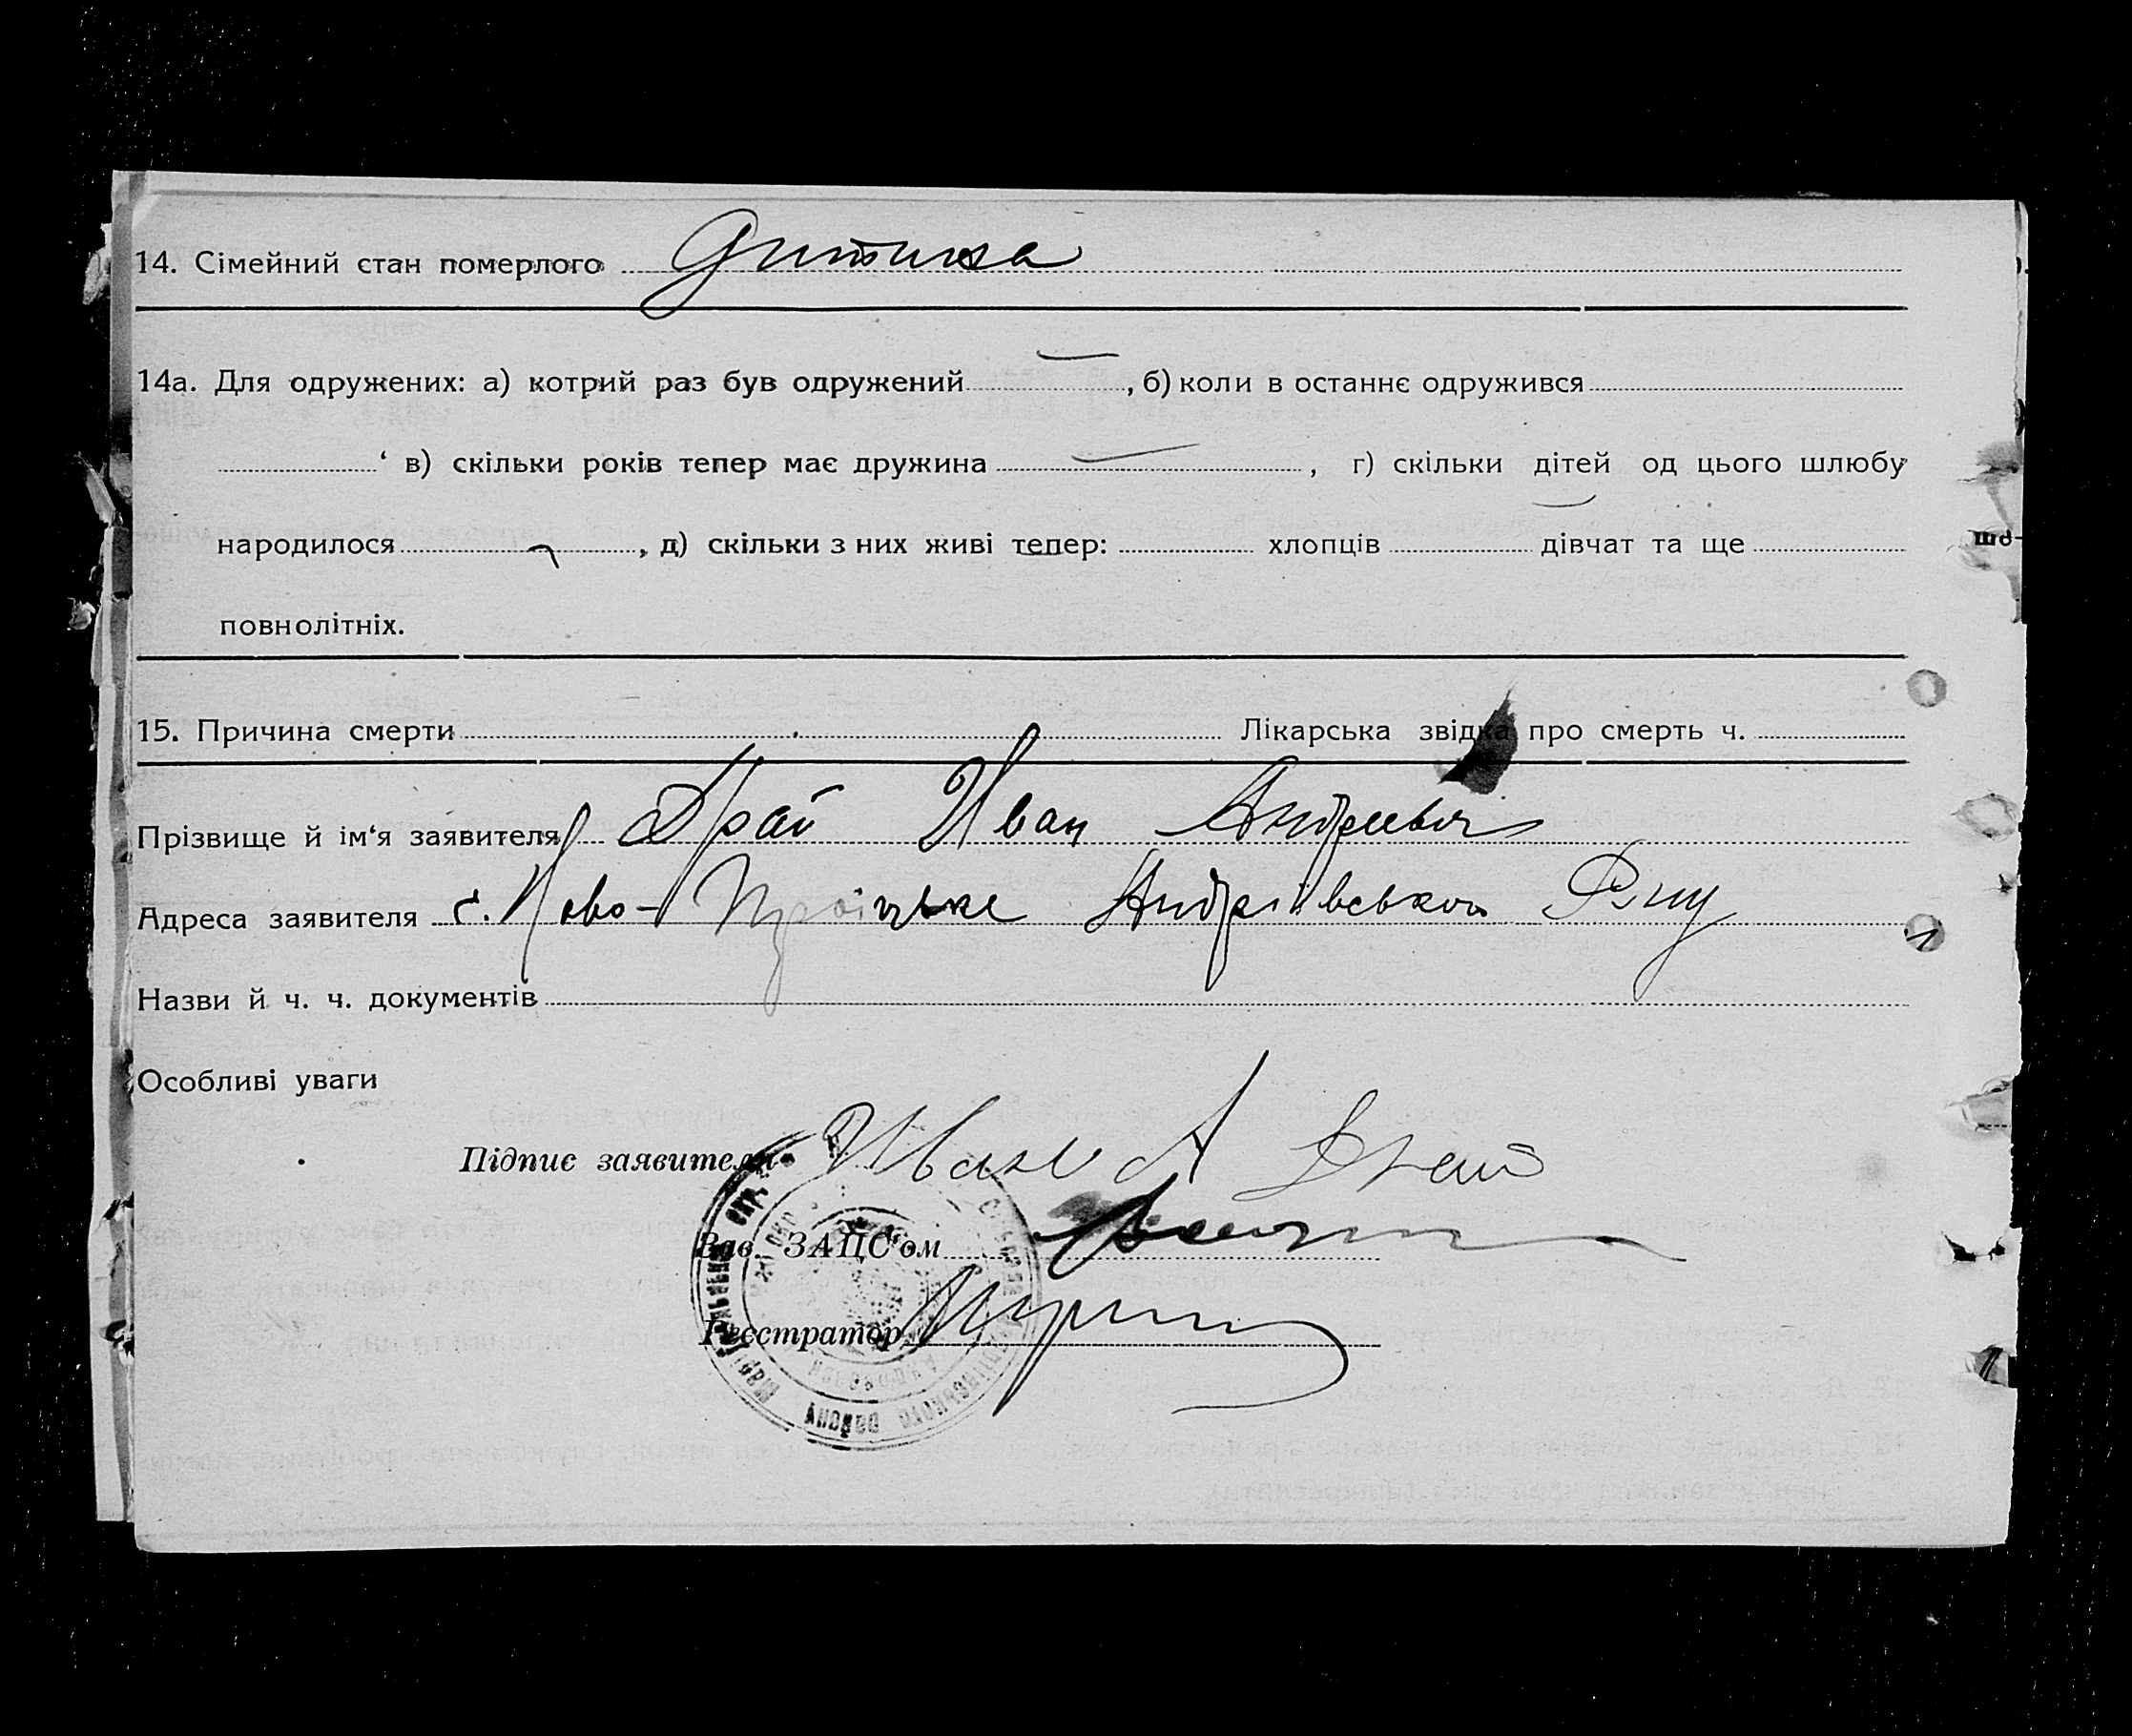 14. Сімейний стан померлого Дитина
14а. Для одружених: а) котрий раз був одружений — , б) коли в останнє одружився
‘ в) скільки років тепер має дружина — , г) скільки дітей од цього шлюбу
народилося , д) скільки з них живі тепер: хлопців дівчат та ще
повнолітніх.
15. Причина смерти Лікарська звідка про смерть ч.
Прізвище й ім‘я заявителя Драй Иван Андреевич
Адреса заявителя с. Ново-Троіцьке Андріівського Р-ну
Назви й ч. ч. документів
Особливі уваги
Підпис заявителя Иван А Драй
Зав. ЗАГС‘ом
Реєстратор
району